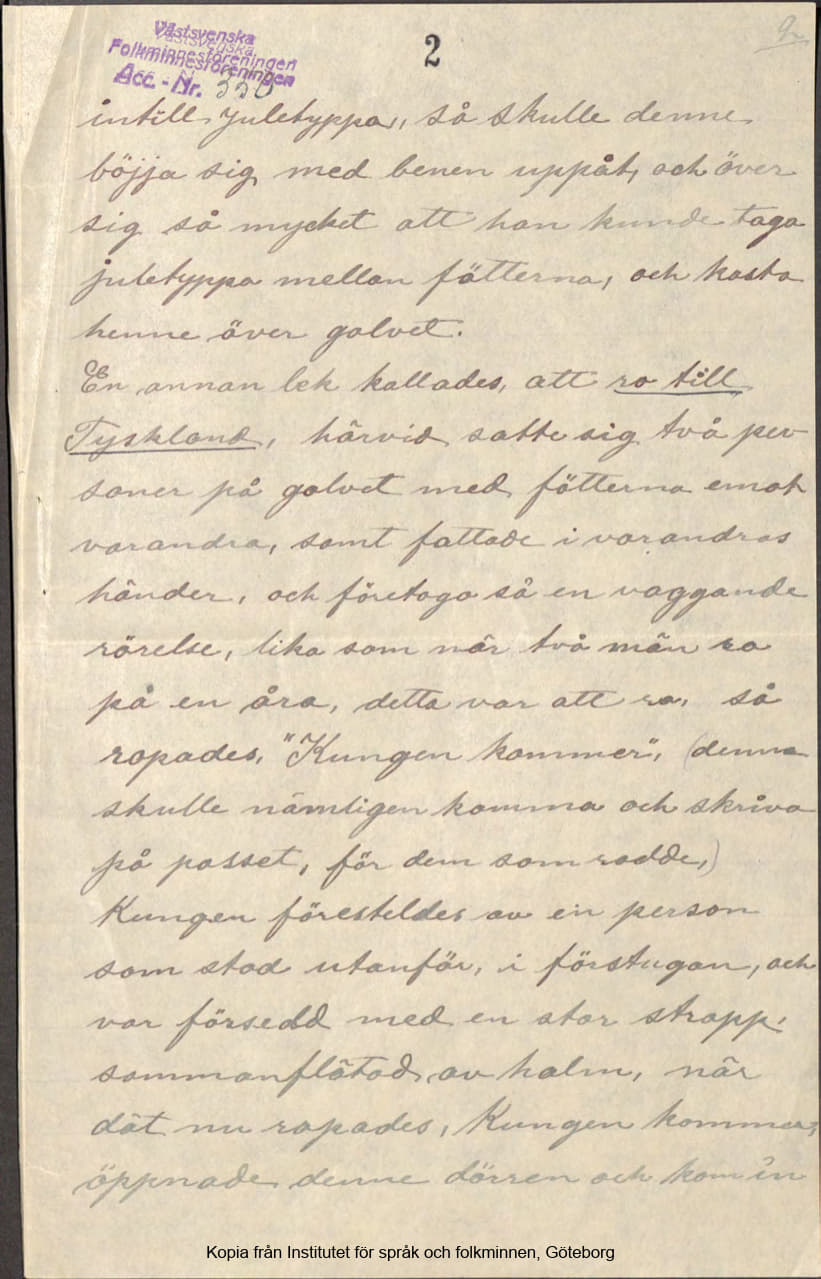 Västsvenska
Folkminnesföreningen
Acc. - Nr. 350
2
2
intill juletyppa, så skulle denne
böjja sig, med benen uppåt, och över
sig så mycket att han kunde taga
juletyppa mellan fötterna, och kasta
henne över golvet.
En annan lek kallades, att ro till
Tyskland, härvid satte sig två per
soner på golvet med fötterna emot
varandra, samt fattade i varandras
händer, och företogo så en vaggande
rörelse, lika som när två män ro
på en åra, detta var att ro, så
ropades, "Kungen kommer", (denna
skulle nämligen komma och skriva
på passet, för dem som rodde,)
Kungen föresteldes av ein person
som stod utanför, i förstugan, och
var försedd med en stor strapp,
sammanflätad av halm, när
dät nu ropades, Kungen kommer,
öppnade denne dörren och kom in
Kopia från Institutet för språk och folkminnen, Göteborg